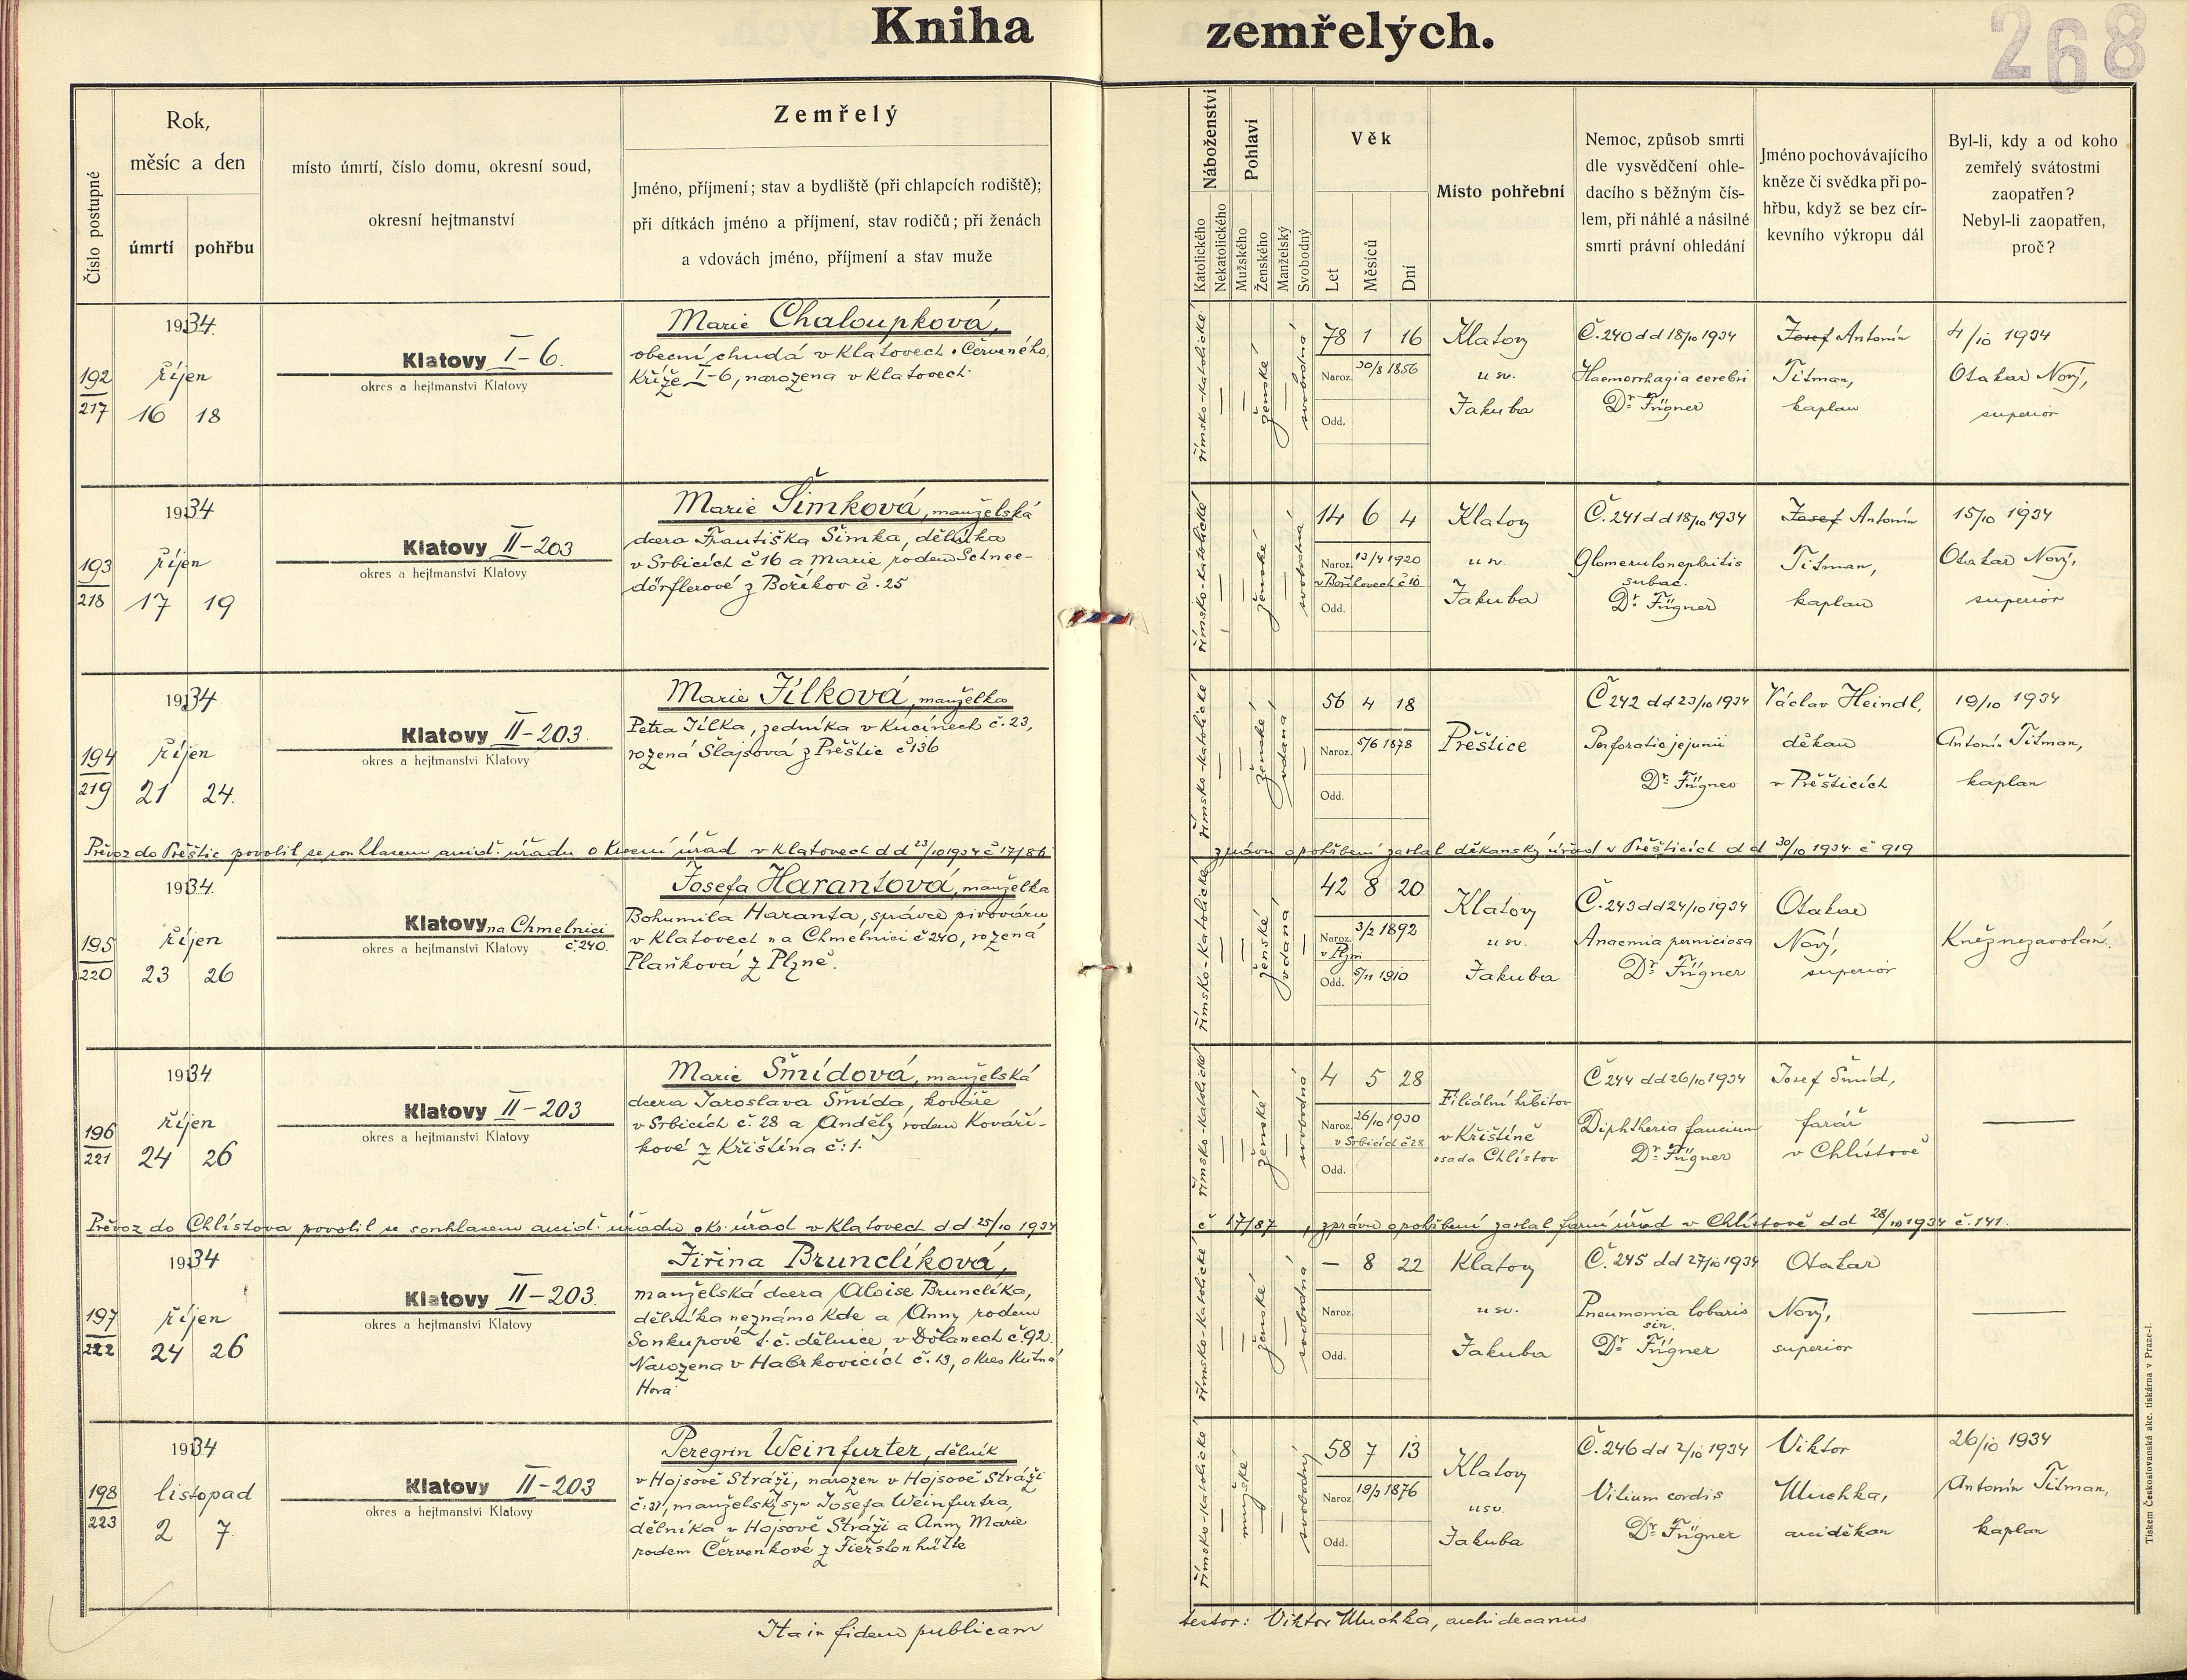 Kniha zemřelých.
268
Číslo postupné
Rok,
měsíc a den
úmrtí
pohřbu
místo úmrtí, číslo domu, okresní soud,
okresní hejtmanství
Zemřelý
Jméno, příjmení; stav a bydliště (při chlapcích rodiště);
při dítkách jméno a příjmení, stav rodičů; při ženách
a vdovách jméno, příjmení a stav muže
Náboženství
Katolického
Nekatolického
Pohlaví
Mužského
Ženského
Manželský
Svobodný
Věk
Let
Měsíců
Dní
Místo pohřební
Nemoc, způsob smrti
dle vysvědčení ohle-
dacího s běžným čís-
lem, při náhlé a násilné
smrti právní ohledání
Jméno pochovávajícího
kněze či svědka při po-
hřbu, když se bez cír-
kevního výkropu dál
Byl-li, kdy a od koho
zemřelý svátostmi
zaopatřen?
Nebyl-li zaopatřen,
proč?
192
217
1934.
říjen
16 18
Klatovy I-6.
okres a hejtmanství Klatovy
Marie Chaloupková,
obecní chudá v Klatovech Červeného
Kříže I-6, narozena v Klatovech.
římsko-katolické
ženské
svobodná
78 1 16
Naroz. 30/8 1856
Odd.
Klatovy
u sv.
Jakuba
Č. 240 dd 18/10 1934
Haemorrhagia cerebri
Dr. Fügner
Josef Antonín
Titman,
kaplan
4/10 1934
Otakar Nový,
superior
193
218
1934
říjen
17 19
Klatovy II-203
okres a hejtmanství Klatovy
Marie Šimková, manželská
dcera Františka Šimka, dělníka
v Srbicích č 16 a Marie rodem Schnee-
dörflerové z Boříkov č. 25
římsko-katolické
ženské
svobodná
14 6 4
Naroz. 13/4 1920
v Boříkovech č 10
Odd.
Klatovy
u sv.
Jakuba
Č. 241 dd 18/10 1934
Glomerulonephritis
subac.
Dr. Fügner
Josef Antonín
Titman,
kaplan
15/10 1934
Otakar Nový,
superior
194
219
1934
říjen
21 24.
Klatovy II-203.
okres a hejtmanství Klatovy
Marie Jílková, manželka
Petra Jílka, zedníka v Kucínech č. 23,
rozená Šlajsová z Přeštic č 136
římsko-katolické
ženské
vdaná
56 4 18
Naroz. 5/6 1878
Odd.
Přeštice
Č 242 dd 23/10 1934
Perforatio jejunii
Dr. Fügner
Václav Heindl,
děkan
v Přešticích
19/10 1934
Antonín Titman,
kaplan
Převoz do Přeštic povolil se souhlasem arcid. úřadu okresní úřad v Klatovech dd 23/10 1934 č 17/86
zprávu o pohřbení zaslal děkanský úřad v Přešticích dd 30/10 1934. č 919
195
220
1934.
říjen
23 26
Klatovy na Chmelnici
č 240.
okres a hejtmanství Klatovy
Josefa Harantová, manželka
Bohumila Haranta, správce pivováru
v Klatovech na Chmelnici č 240, rozená
Plaňková z Plzně.
římsko-katolické
ženské
vdaná
42 8 20
Naroz. 3/2 1892
v Plzni
Odd. 5/11 1910
Klatovy
u sv.
Jakuba
Č. 243 dd 24/10 1934
Anaemia perniciosa
Dr. Fügner
Otakar
Nový,
superior
Kněz nezavolán.
196
221
1934
říjen
24 26
Klatovy II-203
okres a hejtmanství Klatovy
Marie Šmídová, manželská
dcera Jaroslava Šmída, kováře
v Srbicích č. 28 a Anděly rodem Kováří-
kové z Křištína č: 1.
římsko-katolické
ženské
svobodná
4 5 28
Naroz. 26/10 1930
v Srbicích č 28
Odd.
Filiální hřbitov
v Křištíně
osada Chlístov
Č 244 dd 26/10 1934
Diphtheria faucium
Dr. Fügner
Josef Šmíd,
farář
v Chlístově
—
Převoz do Chlístova povolil se souhlasem arcid. úřadu okr. úřad v Klatovech dd 25/10 1934
č 17/87, zprávu o pohřbení zaslal farní úřad v Chlístově dd 28/10 1934 č. 141.
197
222
1934
říjen
24 26
Klatovy II-203.
okres a hejtmanství Klatovy
Jiřina Brunclíková,
manželská dcera Aloise Brunclíka,
dělníka neznámo kde a Anny rodem
Soukupové t. č. dělnice v Dolanech č 92.
Narozena v Habrkovicích č. 13, okres Kutná
Hora
římsko-katolické
ženské
svobodná
— 8 22
Naroz.
Odd.
Klatovy
u sv.
Jakuba
Č. 245 dd 27/10 1934
Pneumonia lobaris
sin.
Dr. Fügner
Otakar
Nový,
superior
—
198
223
1934
listopad
2 7.
Klatovy II-203
okres a hejtmanství Klatovy
Peregrin Weinfurter, dělník
v Hojsově Stráži, narozen v Hojsově Stráži
č: 31, manželský syn Josefa Weinfurtra,
dělníka v Hojsově Stráži a Anny Marie
rodem Červenkové z Fierstonhütte
římsko-katolické
mužské
svobodný
58 7 13
Naroz. 19/3 1876
Odd.
Klatovy
u sv.
Jakuba
Č. 246 dd 2/10 1934
Vitium cordis
Dr. Fügner
Viktor
Muchka,
arciděkan
26/10 1934
Antonín Titman,
kaplan
Ita in fidem publicam
testor: Viktor Muchka, archidecanus
Tiskem Českoslovanská akc. tiskárna v Praze-I.